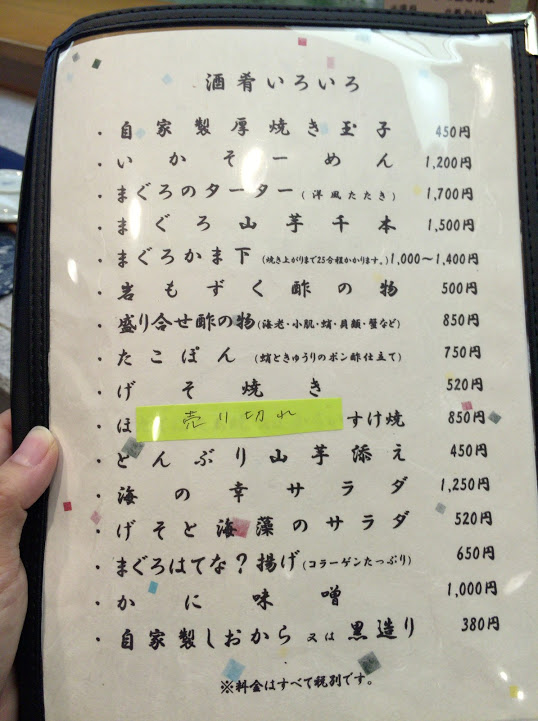 酒肴いろいろ
・自家製厚焼き玉子 450円
・いかそーめん 1,200円
・まぐろのターター(洋風たたき) 1,700円
・まぐろ山芋千本 1,500円
・まぐろかま下(焼き上がりまで25分程かかります。) 1,000～1,400円
・岩もずく酢の物 500円
・盛り合せ酢の物(海老・小肌・蛸・貝類・蟹など) 850円
・たこぽん(蛸ときゅうりのポン酢仕立て) 750円
・げそ焼き 520円
・ほ 売り切れ すけ焼 850円
・とんぶり山芋添え 450円
・海の幸サラダ 1,250円
・げそと海藻のサラダ 520円
・まぐろはてな?揚げ(コラーゲンたっぷり) 650円
・かに味噌 1,000円
・自家製しおから又は黒造り 380円
※料金はすべて税別です。